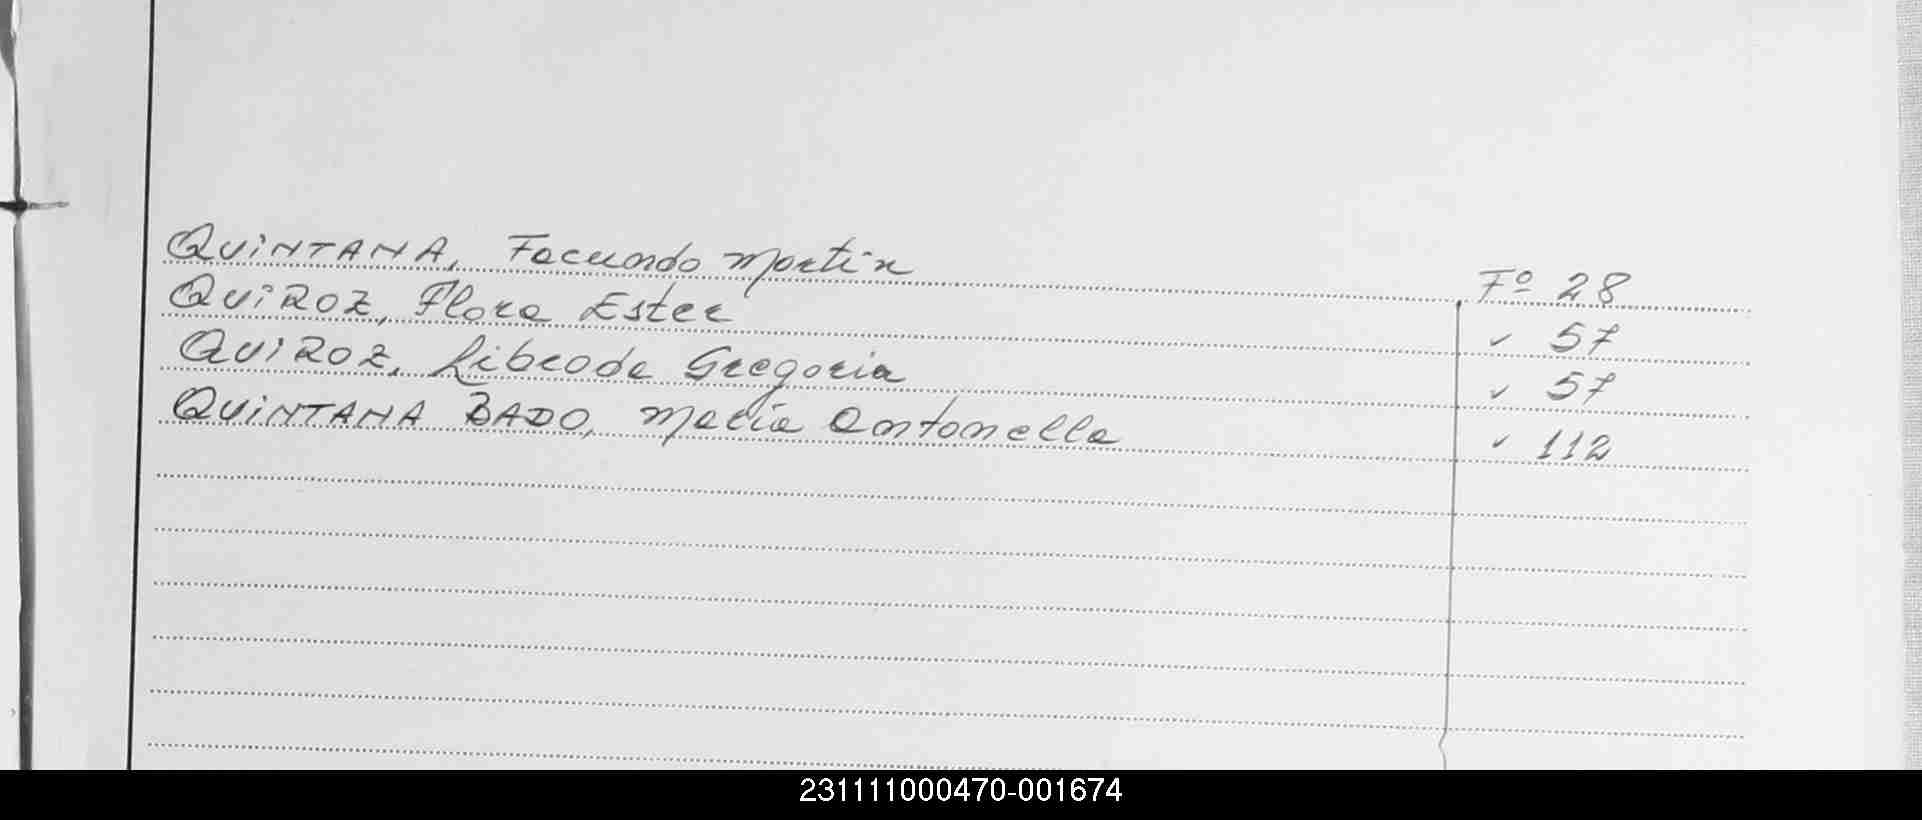 QUINTANA, Facundo Martín Fº 28
QUIROZ, Flora Ester ✓ 57
QUIROZ, Librada Gregoria ✓ 57
QUINTANA BADO, María Antonella ✓ 112
231111000470-001674